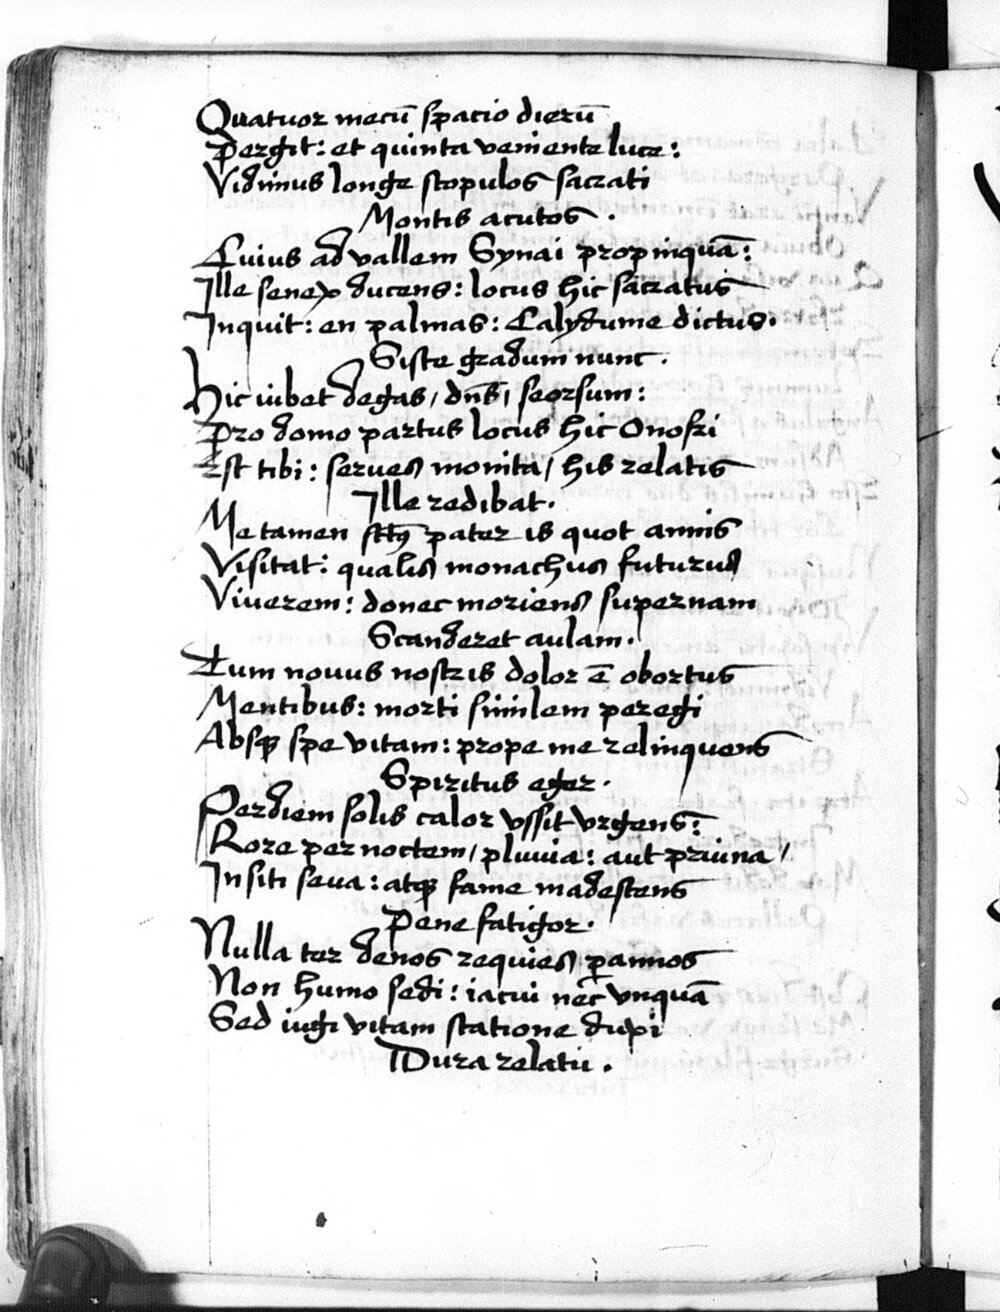 Quatuor mecū spacio dierū
Pergit: et quinta veniente luce:
Vidimus longe scopulos sacrati
Montis acutos.
Cuius ad vallem Synai propinquā:
Ille senex ducens: locus hic sacratus
Inquit: en palmas: Calydume dictus.
Siste gradum nunc.
Hic iubet degas, dn̄s, seorsum:
Pro domo partus locus hic Onofri
Est tibi: serues monita, his relatis
Ille redibat.
Me tamen pater is quot annis
Visitat: qualis monachus futurus
Viuerem: donec moriens supernam
Scanderet aulam.
Tum nouus nostris dolor ē obortus
Mentibus: morti similem peregi
Absq3 spe vitam: prope me relinquens
Spiritus eger.
Perdiem solis calor vssit vrgens:
Rore per noctem, pluuia: aut pruina,
In siti seua: atq3 fame madescens
Pene fatigor.
Nulla ter denos requies p annos
Non humo sedi: iacui nec vnquā
Sed iugi vitam statione dupi
Dura relatu.